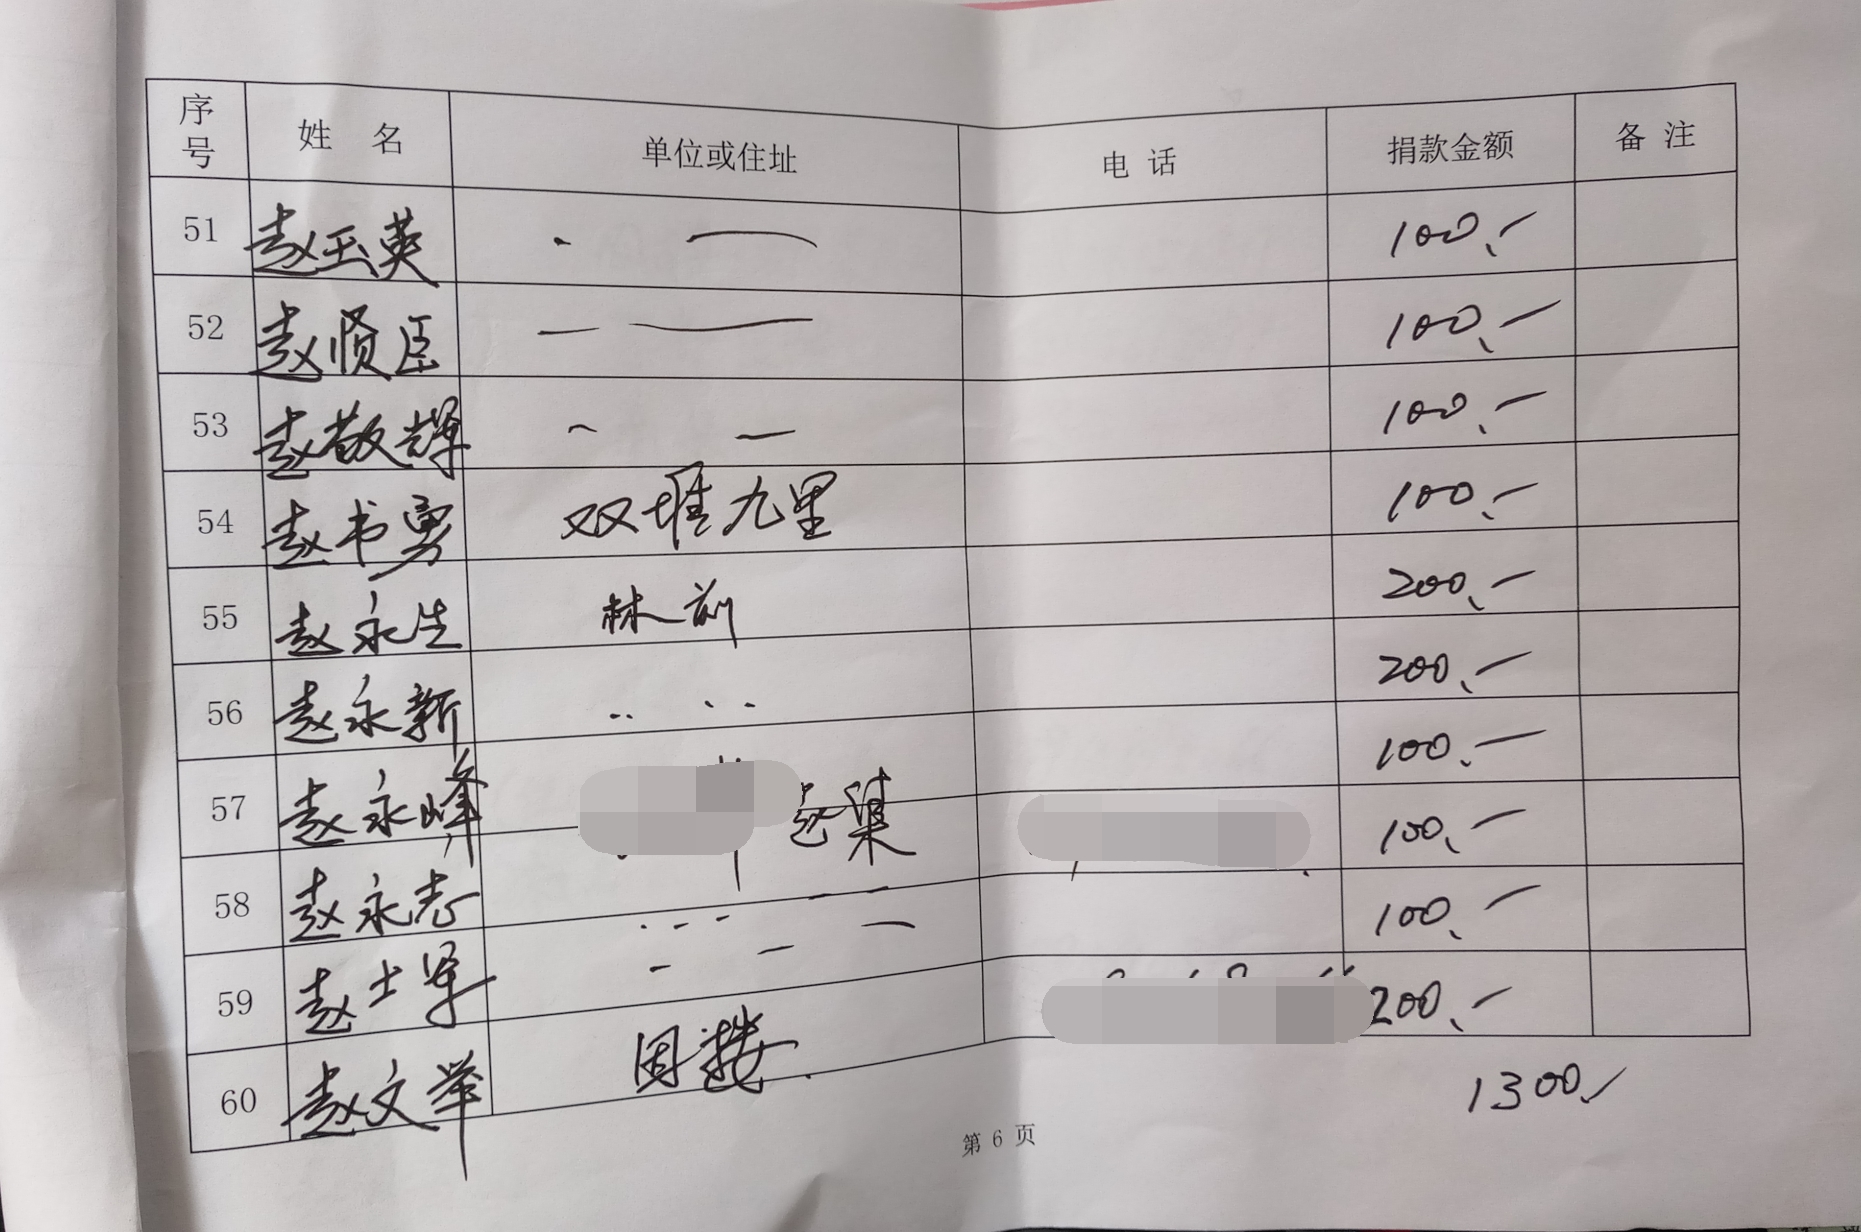 序号 姓名 单位或住址 电话 捐款金额 备注
51 赵玉英 100.-
52 赵贤臣 100.-
53 赵敬辉 100.-
54 赵书勇 双堆九里 100.-
55 赵永生 林前 200.-
56 赵永新 200.-
57 赵永峰 赵集 100.-
58 赵永志 100.-
59 赵士军 100.-
60 赵文举 周楼 200.-
1300.-
第 6 页